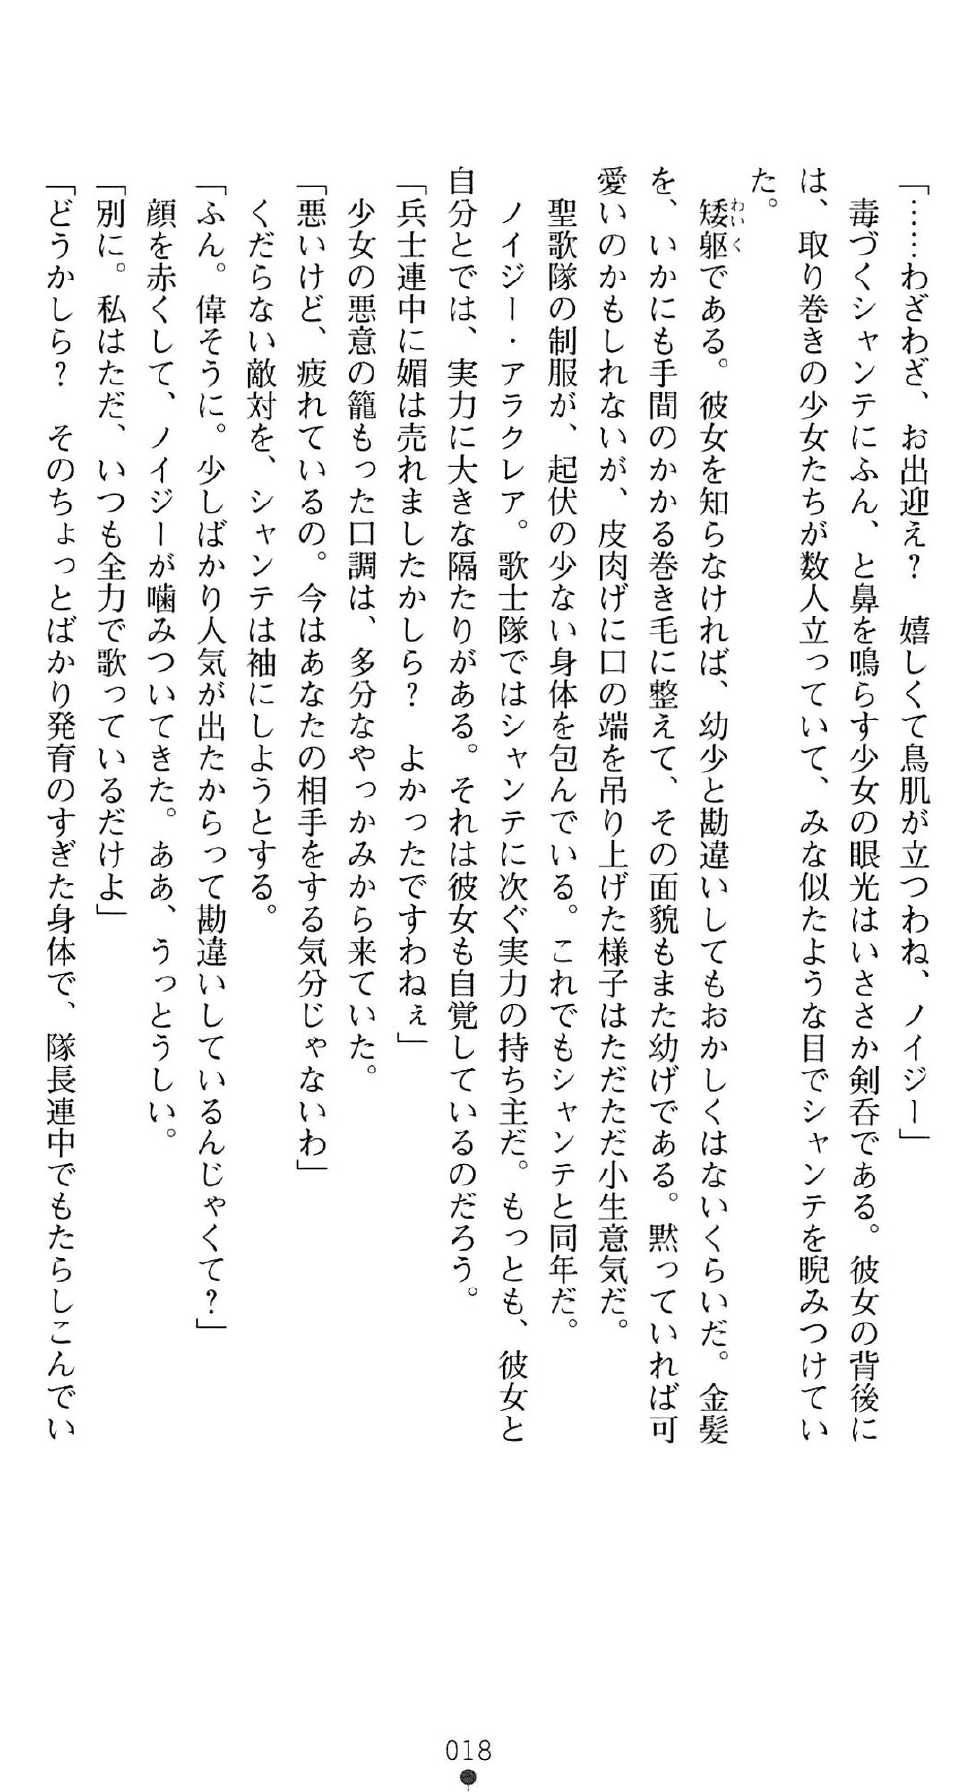 「……わざわざ、お出迎え？　嬉しくて鳥肌が立つわね、ノイジー」
　毒づくシャンテにふん、と鼻を鳴らす少女の眼光はいささか剣呑である。彼女の背後に
は、取り巻きの少女たちが数人立っていて、みな似たような目でシャンテを睨みつけてい
た。
　矮躯わいくである。彼女を知らなければ、幼少と勘違いしてもおかしくはないくらいだ。金髪
を、いかにも手間のかかる巻き毛に整えて、その面貌もまた幼げである。黙っていれば可
愛いのかもしれないが、皮肉げに口の端を吊り上げた様子はただただ小生意気だ。
　聖歌隊の制服が、起伏の少ない身体を包んでいる。これでもシャンテと同年だ。
　ノイジー・アラクレア。歌士隊ではシャンテに次ぐ実力の持ち主だ。もっとも、彼女と
自分とでは、実力に大きな隔たりがある。それは彼女も自覚しているのだろう。
「兵士連中に媚は売れましたかしら？　よかったですわねぇ」
　少女の悪意の籠もった口調は、多分なやっかみから来ていた。
「悪いけど、疲れているの。今はあなたの相手をする気分じゃないわ」
　くだらない敵対を、シャンテは袖にしようとする。
「ふん。偉そうに。少しばかり人気が出たからって勘違いしているんじゃなくて？」
　顔を赤くして、ノイジーが噛みついてきた。ああ、うっとうしい。
「別に。私はただ、いつも全力で歌っているだけよ」
「どうかしら？　そのちょっとばかり発育のすぎた身体で、隊長連中でもたらしこんでい
018